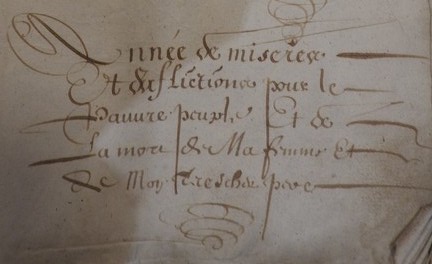 Année de miseres
Et daflictions pour le
Pauure peuple Et de
La mort de Ma femme Et
de Moy trescher pere